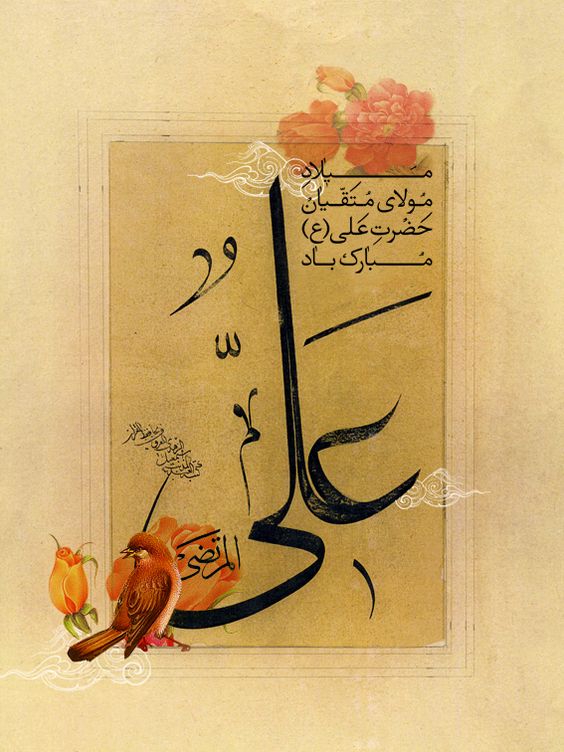 مـیلادِ
مُولای مُتَقّـیانْ
حَضْرتِ عَلی (ع)
مُـبارک بـاد
عَلی
المرتضی